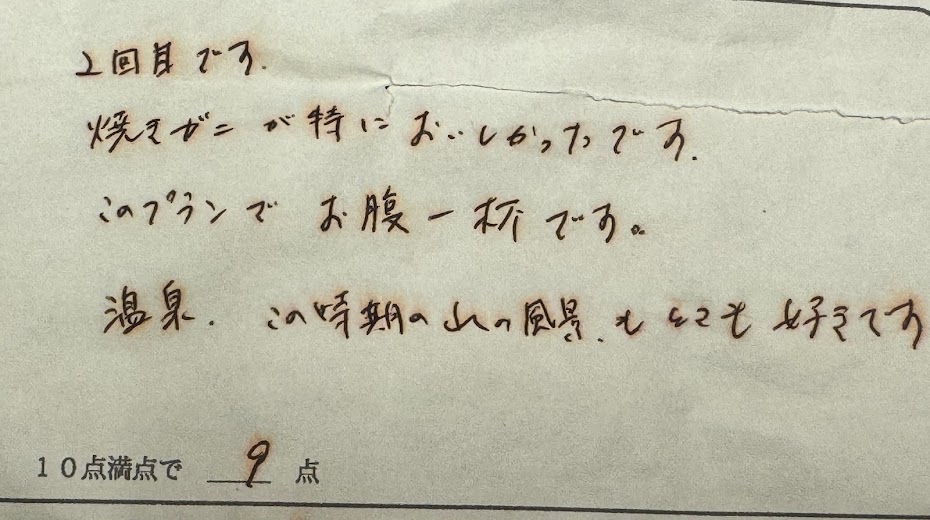 2回目です.
焼きガニが特においしかったです.
このプランでお腹一杯です。
温泉. この時期の山の風景.もとても好きです
10点満点で 9 点